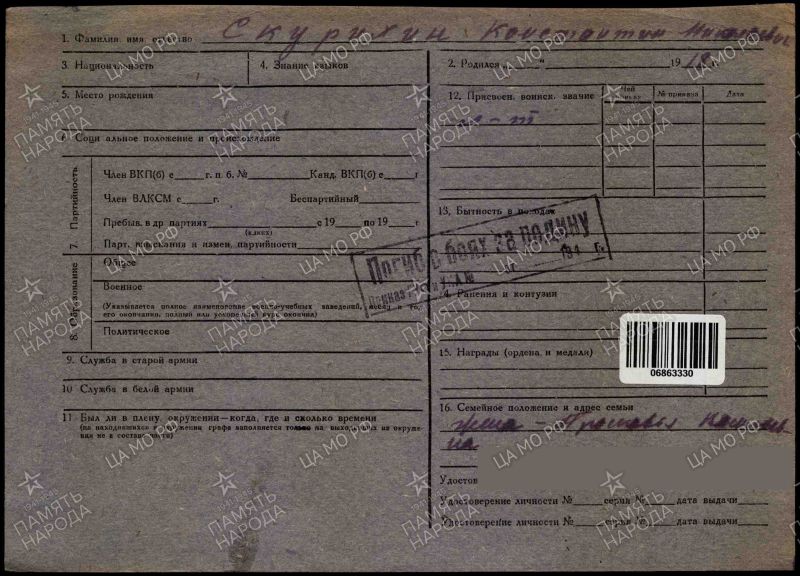 1. Фамилия, имя, отчество Скурихин Константин
3. Национальность 4. Знание языков
2. Родился " 19 18 г.
5. Место рождения
6. Социальное положение и происхождение
12. Присвоен. воинск. звание Чей приказ № приказа Дата
7. Партийность
Член ВКП(б) с г. п. б. № Канд. ВКП(б) с г
Член ВЛКСМ с г. Беспартийный
Пребыв. в др партиях с 19 по 19 г
(каких)
Парт. взыскания и измен. партийности
13. Бытность в походах
Погиб в боях за родину
Приказ 194 г.
8. Образование
Общее
Военное
(Указывается полное наименование военно-учебных заведений, месяц и год
его окончания, полный или ускоренный курс окончил)
Политическое
14. Ранения и контузии
15. Награды (ордена и медали)
06863330
9. Служба в старой армии
10 Служба в белой армии
11 Был ли в плену, окружении—когда, где и сколько времени
(на находившихся в окружении графа заполняется только на выходивших из окруже-
ния не в составе части)
16. Семейное положение и адрес семьи
жена –
Удостов
Удостоверение личности № серия № дата выдачи
Удостоверение личности № серия № дата выдачи
ПАМЯТЬ НАРОДА
ЦА МО РФ